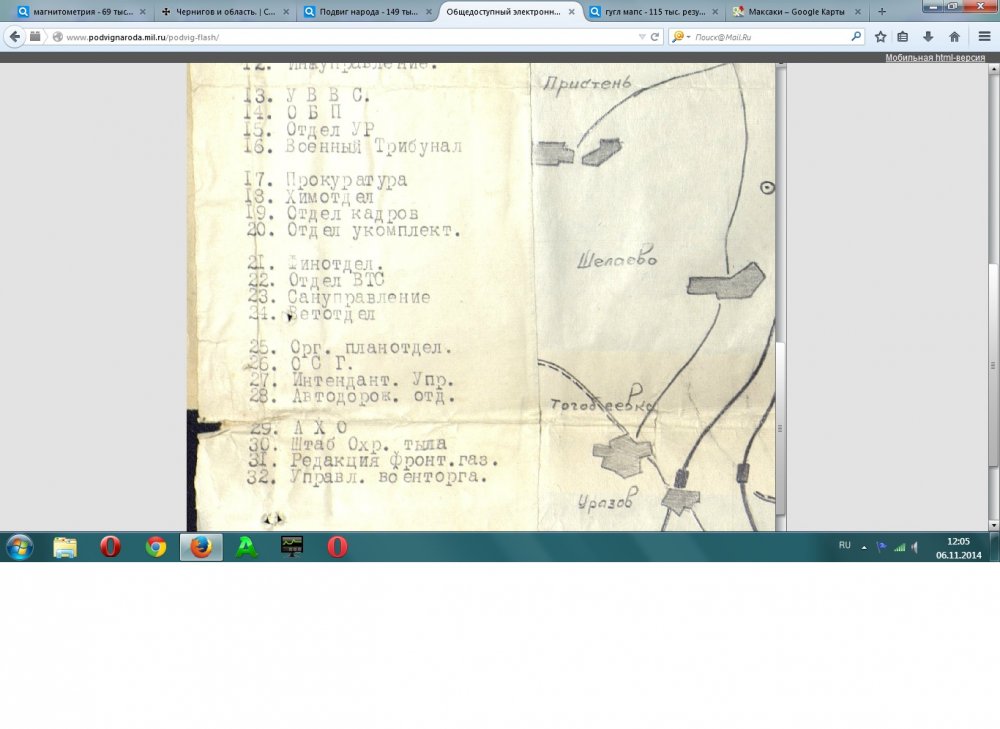 магнитометрия - 69 тыс...
Чернигов и область. | С...
Подвиг народа - 149 ты...
Общедоступный электронн...
гугл мапс - 115 тыс. резу...
Максаки – Google Карты
www.podvignaroda.mil.ru/podvig-flash/
Поиск@Mail.Ru
Мобильная html-версия
12. Инжуправление.
13. У В В С.
14. О Б П
15. Отдел УР
16. Военный Трибунал
17. Прокуратура
18. Химотдел
19. Отдел кадров
20. Отдел укомплект.
21. Финотдел.
22. Отдел ВТС
23. Сануправление
24. Ветотдел
25. Орг. планотдел.
26. О С Г.
27. Интендант. Упр.
28. Автодорож. отд.
29. А Х О
30. Штаб Охр. тыла
31. Редакция фронт.газ.
32. Управл. военторга.
Пристень
Шелаево
Уразов
RU
12:05
06.11.2014